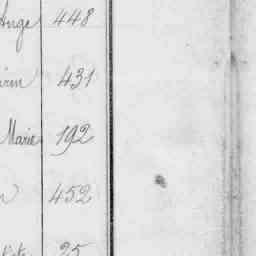 Ange 448
431
Marie 192
452
25